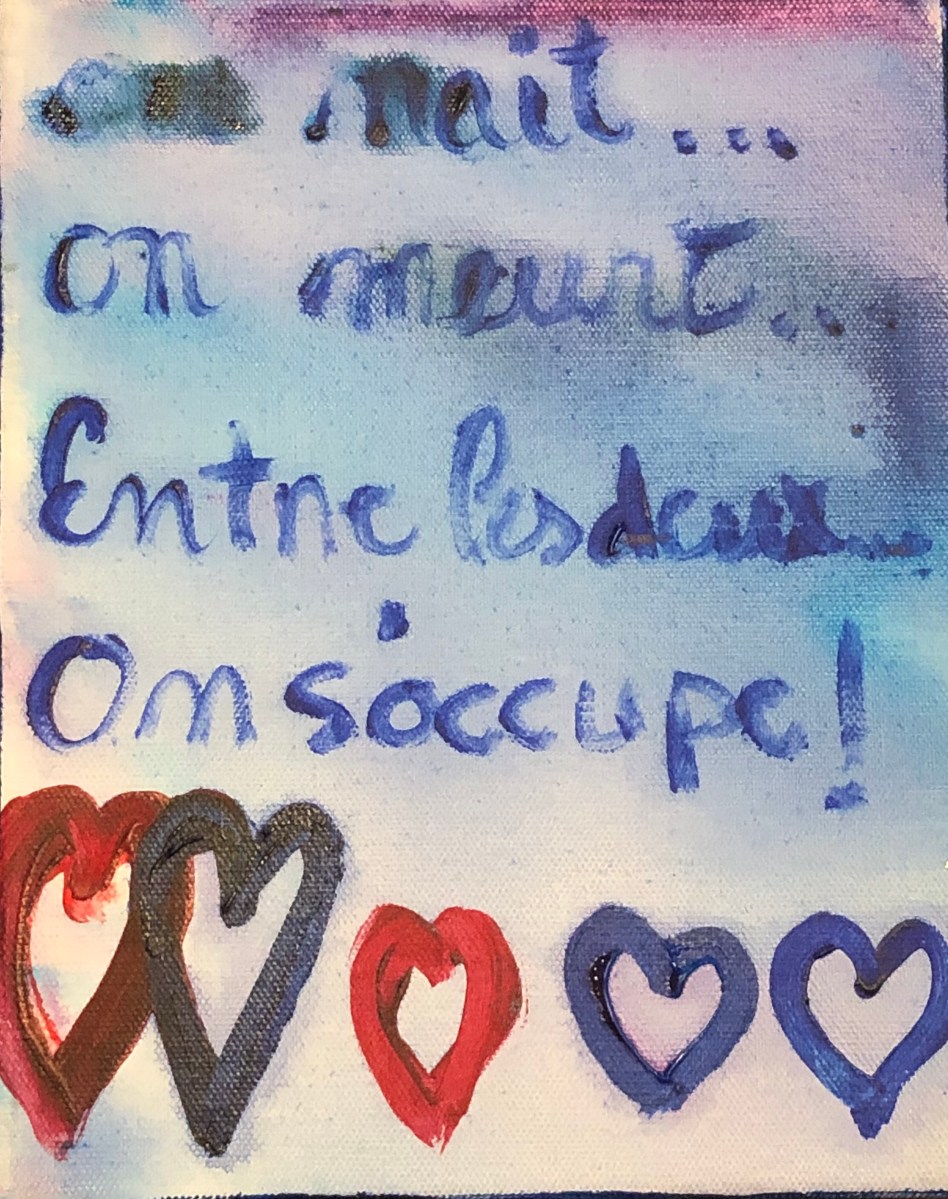 on nait...
on meurt...
Entre les deux...
On s'occupe!